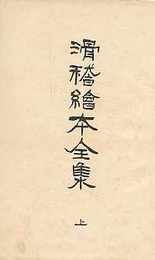 滑稽繪本全集
上